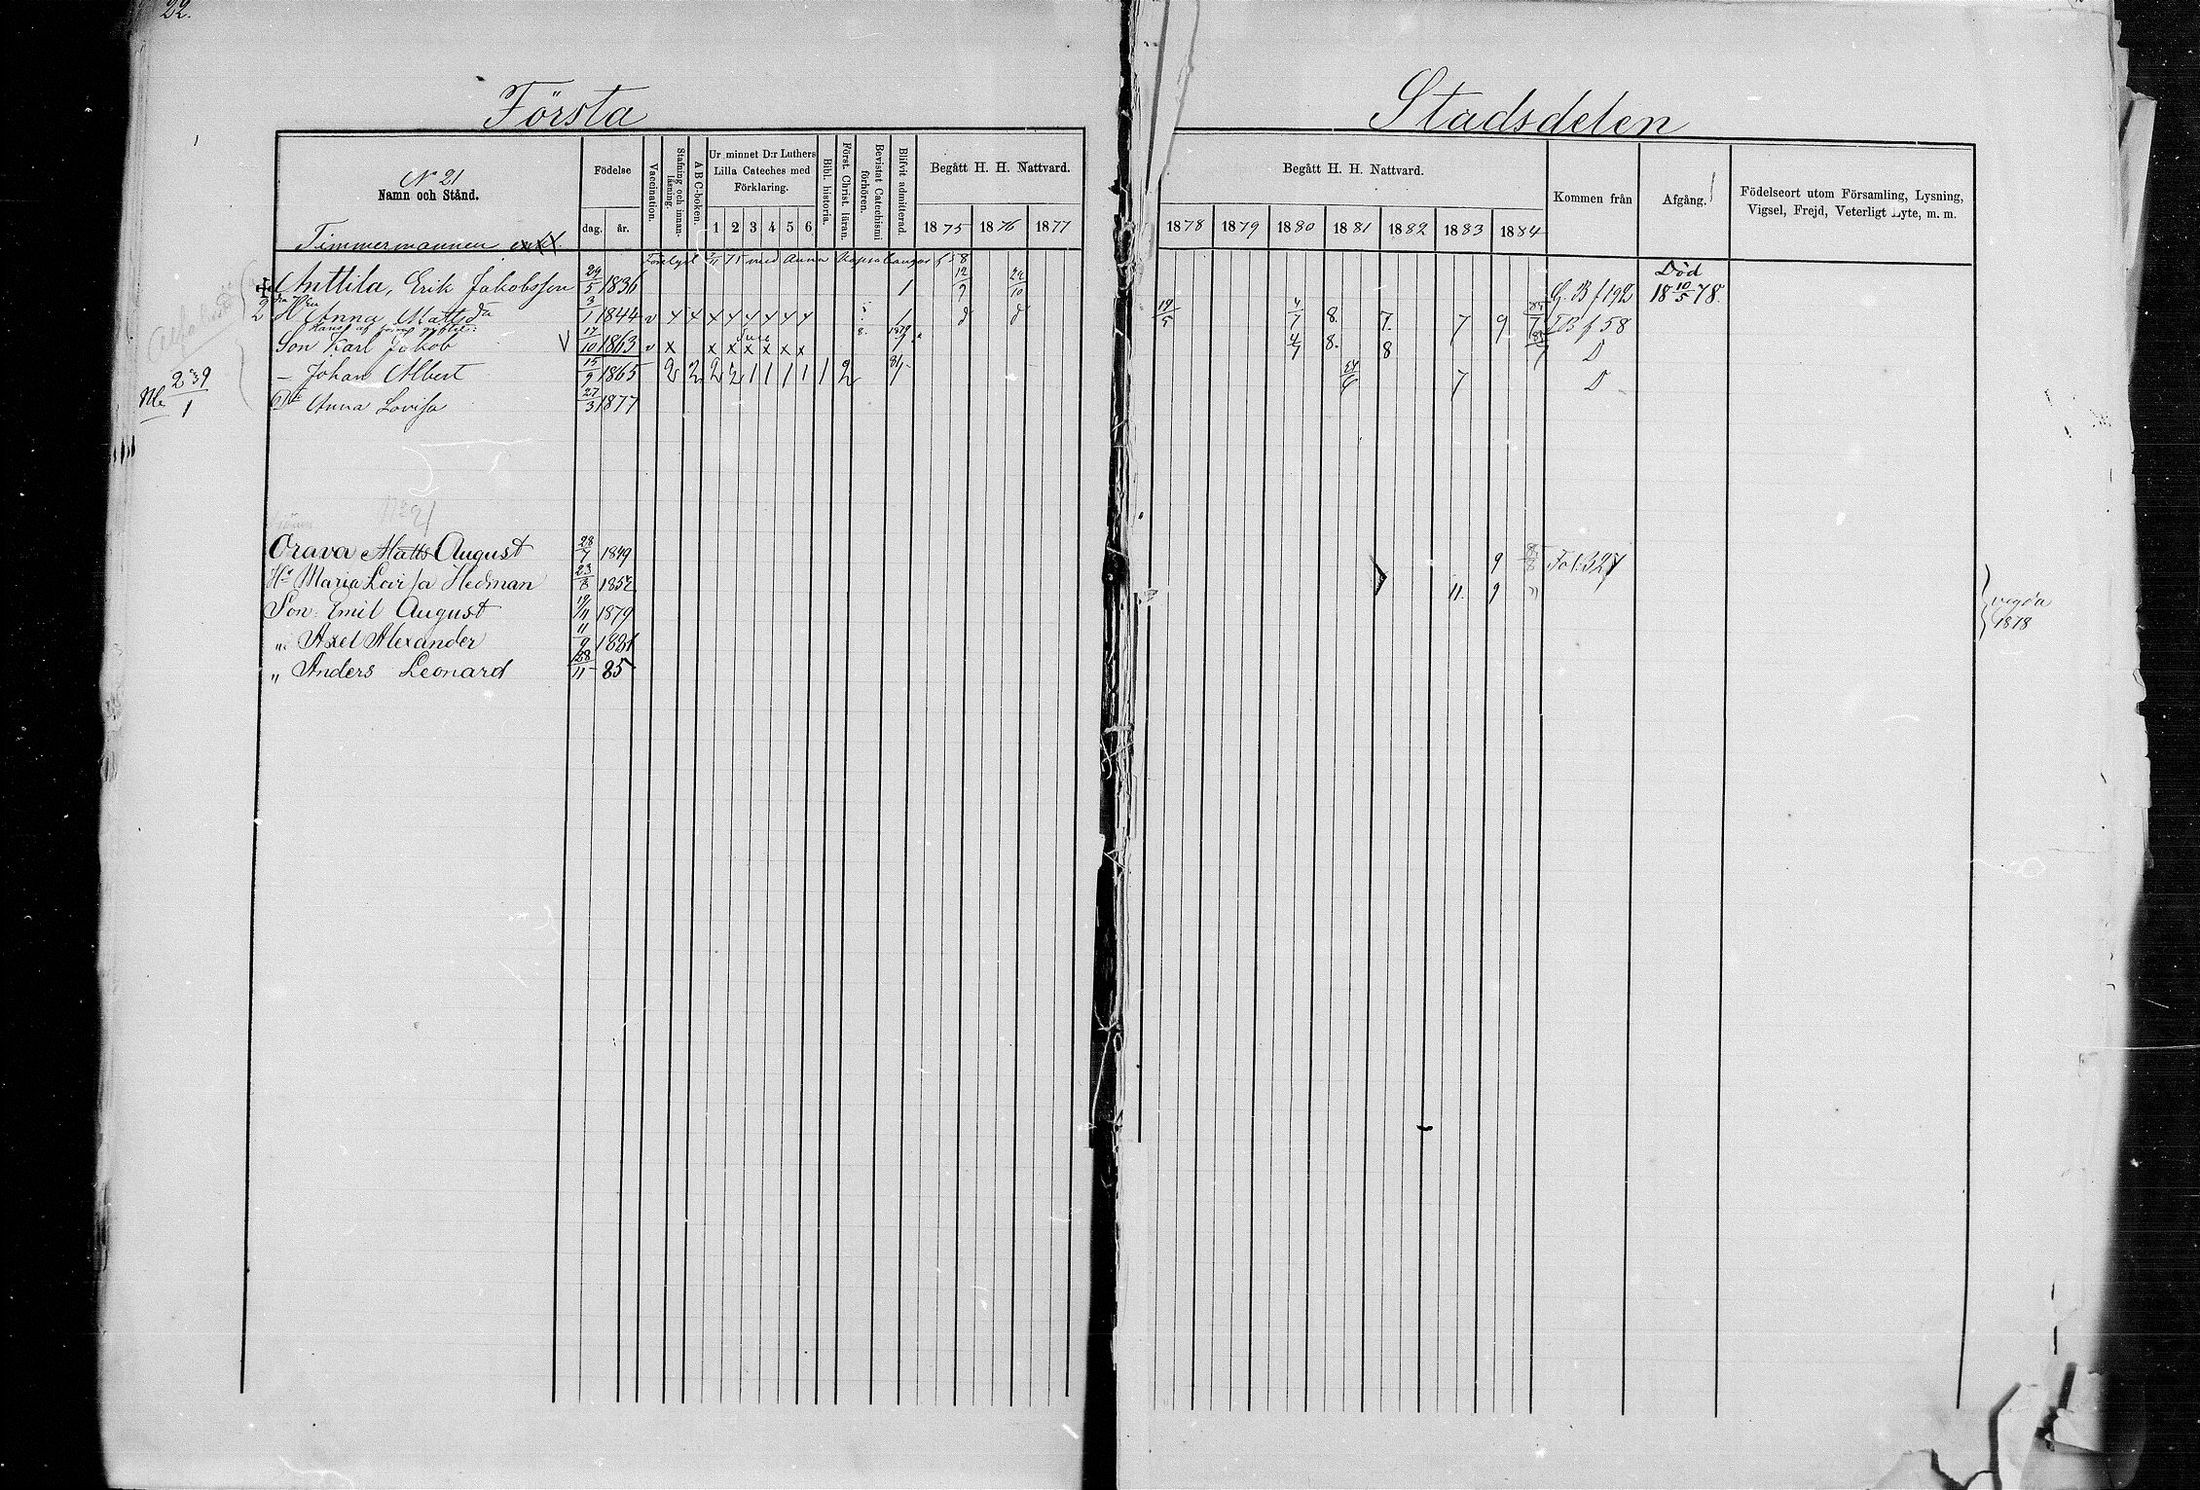 22.
Första
Stadsdelen
No 21
Namn och Stånd.
Födelse
dag. år.
Vaccination.
Stafning och innanläsning.
A B C-boken.
Ur minnet D:r Luthers Lilla Cateches med Förklaring.
1 2 3 4 5 6
Bibl. historia.
Först. Christ. läran.
Bevistat Catechismi förhören.
Blifvit admitterad.
Begått H. H. Nattvard.
1875 1876 1877
Begått H. H. Nattvard.
1878 1879 1880 1881 1882 1883 1884
Kommen från
Afgång.
Födelseort utom Församling, Lysning, Vigsel, Frejd, Veterligt Lyte, m. m.
Timmermannen
med Anna f 58
Anttila, Erik Jakobsson 24/5 1836 1 12/9 G. B f 192 Död 18 10/5 78.
Anna Mattsda 3/1 1844 v x x x x x x x x 19/5 4/7 8. 7. 7 9 IB f 58
Son Karl Jakob V 17/10 1863 v x x x x x x x 4/7 8. 8 D
— Johan Albert 15/9 1865 2 2 2 2 1 1 1 1 1 2 7 D
Dr Anna Lovisa 27/3 1877
239
1
No 21
Orava Matts August 28/7 1849 9 Fol. 327
Hu Maria Lovisa Hedman 23/8 1852 11. 9 "
Son: Emil August 19/11 1879
" Axel Alexander 11/9 1881
" Anders Leonard 28/11 85
vigda
1878